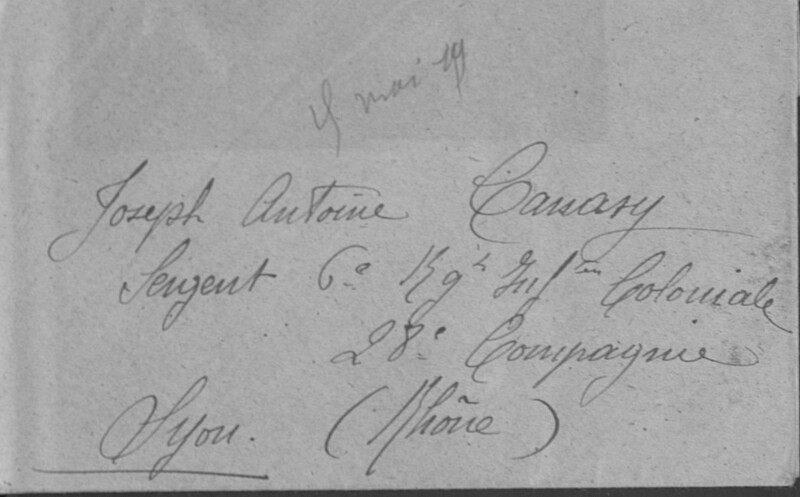 15 mai 19
Joseph Antoine Canasy
Sergent 6e Rgt Infie Coloniale
28e Compagnie
Lyon. (Rhône)